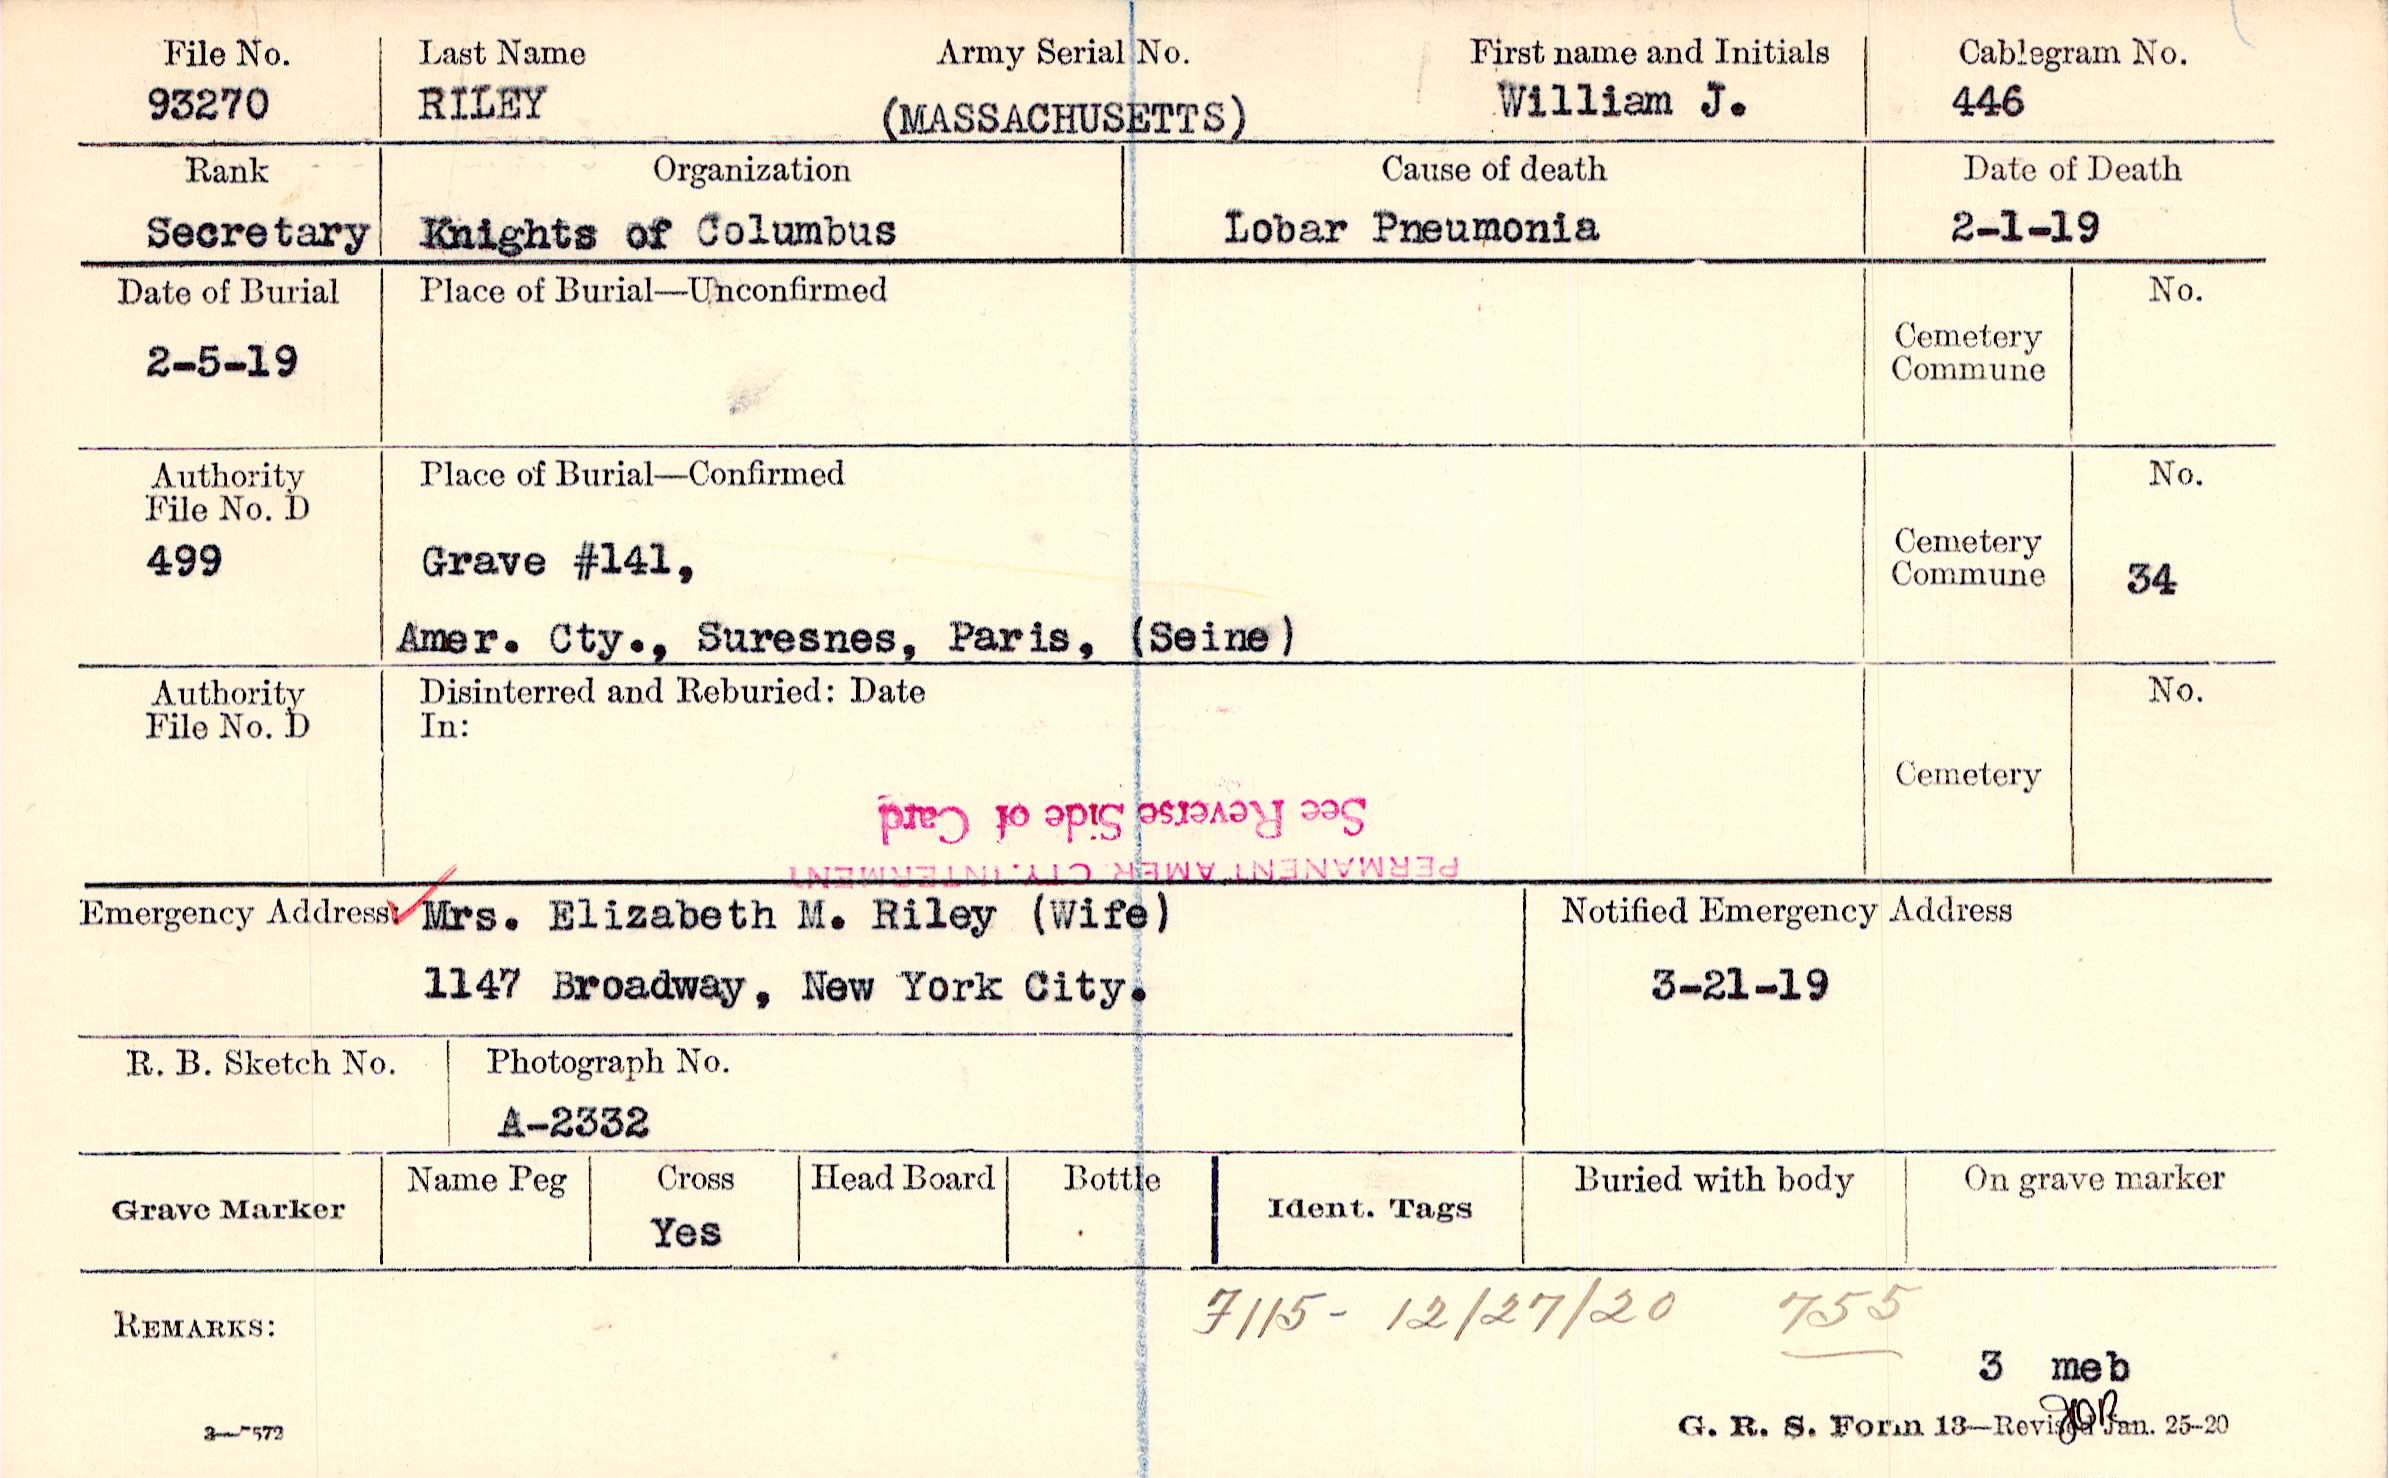 File No. Last Name Army Serial No. First name and Initials Cablegram No.
93270 RILEY (MASSACHUSETTS) William J. 446
Rank Organization Cause of death Date of Death
Secretary Knights of Columbus Lobar Pneumonia 2-1-19
Date of Burial Place of Burial—Unconfirmed No.
2-5-19
Cemetery
Commune
Authority Place of Burial—Confirmed No.
File No. D
499 Grave #141,
Cemetery
Commune 34
Amer. Cty., Suresnes, Paris, (Seine)
Authority Disinterred and Reburied: Date No.
File No. D In:
Cemetery
See Reverse Side of Card
PERMANENT AMER CTY. INTERMENT
Emergency Address: Mrs. Elizabeth M. Riley (Wife) Notified Emergency Address
1147 Broadway, New York City. 3-21-19
R. B. Sketch No. Photograph No.
A-2332
Grave Marker Name Peg Cross Head Board Bottle Ident. Tags Buried with body On grave marker
Yes
7115- 12/27/20 755
REMARKS:
3 meb
G. R. S. Form 13—Revised Jan. 25-20